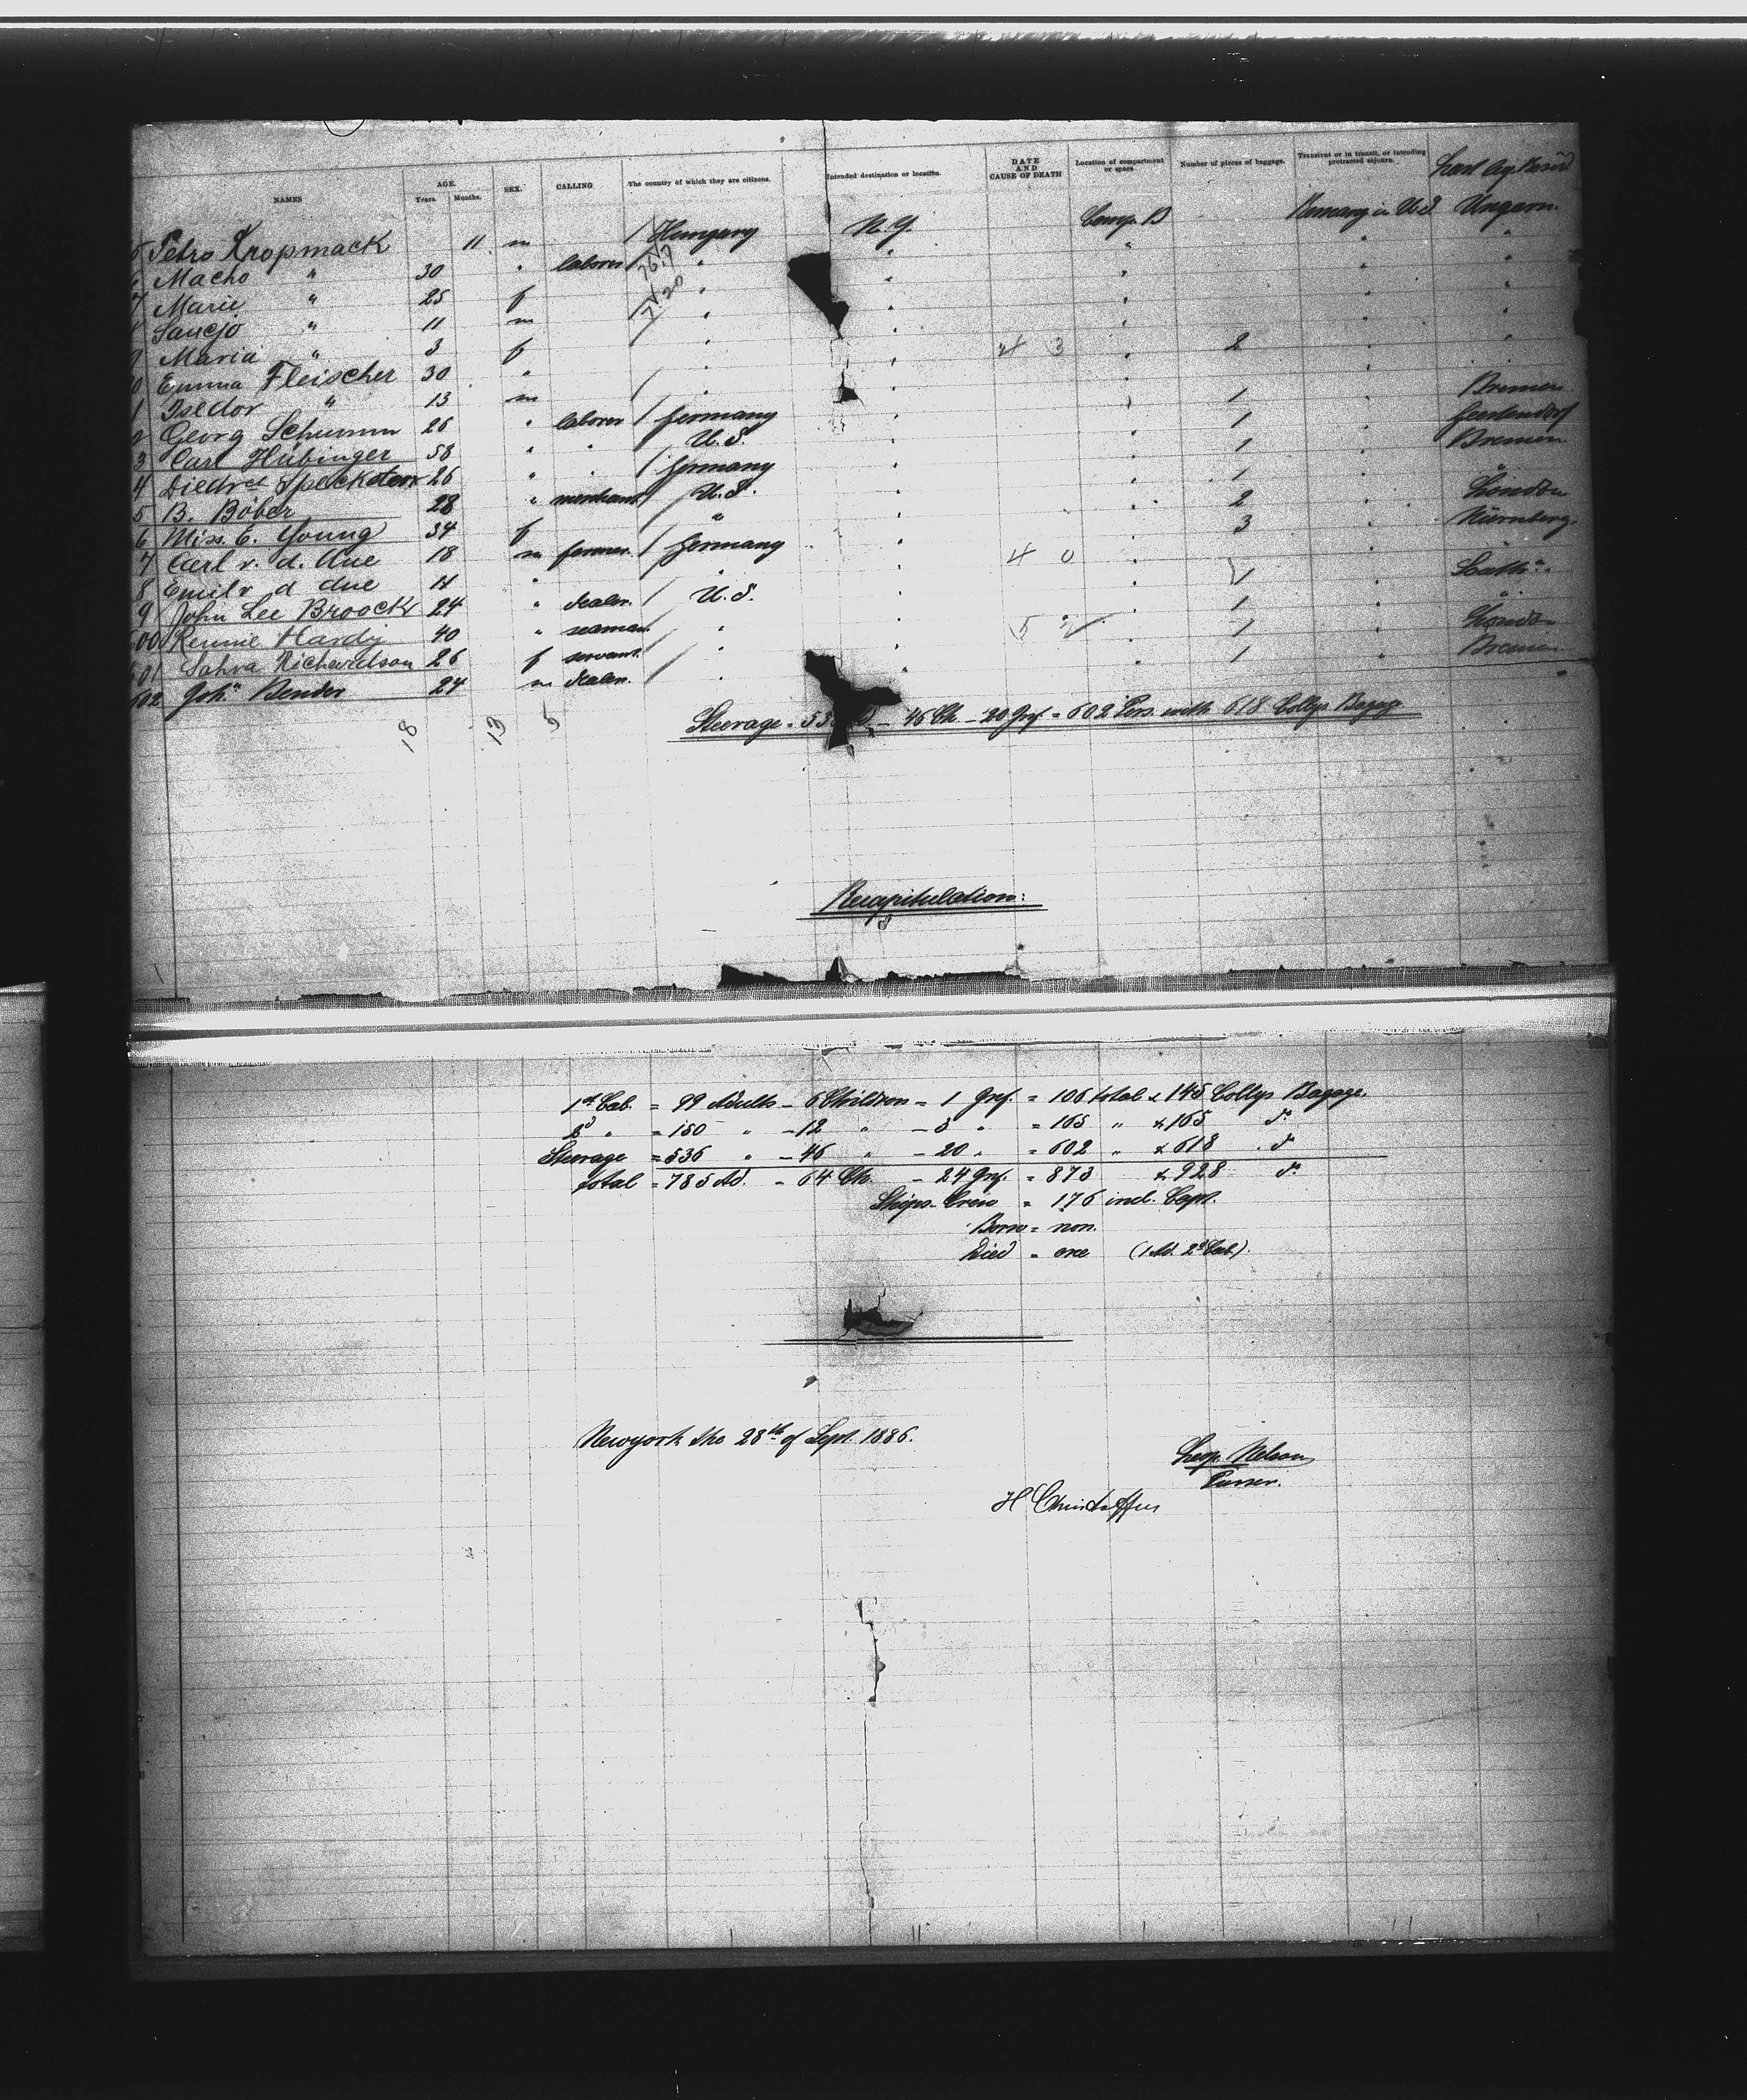 NAMES AGE. Years. Months. SEX. CALLING The country of which they are citizens. Intended destination or location. DATE AND CAUSE OF DEATH Location of compartment or space Number of pieces of baggage. Transient or in transit, or intending protracted sojourn.
5 Petro Kropmack 11 m / Hungary N.Y. Comp. B U.S. Ungarn.
6 Macho " 30 " laborer / "
7 Marie " 25 f "
8 " 11 m / "
9 Maria " 3 f "
0 Emma Fleischer 30 " " 2
1 Isedor " 13 m / "
2 Georg Schumm 26 " laborer / Germany 1 Bremen
3 Carl Hübinger 58 " " U.S. 1
4 26 " / Germany 1 Bremen.
5 B. Böber 28 " merchant / U.S. 1 "
6 Miss. E. Young 34 f / " 2 London
7 Carl v. d. Aue 18 m farmer. / Germany 3 Nürnberg.
8 Emil v d Aue 14 " "
9 John Lee Broock 24 " dealer. / U.S. 1
600 Rennie Hardy 40 " seaman / " 1 "
601 Sahra Richardson 26 f servant. / " 1 London
602 Joh.n Bender 24 m dealer. / " 1 Bremen
18 13 5
Steerage = - 46 Ch - 20 Inf. = 602 Pers. with 618 Collys Bagage
Recapitulation:
1st Cab. = 99 Adults - 6 Children - 1 Inf. = 106 total & 145 Collys Bagage.
2d " = 150 " - 12 " - 3 " = 165 " & 165 do
Steerage = 536 " - 46 " - 20 " = 602 " & 618 " do
total = 785 Ad. - 64 Ch. - 24 Inf. = 873 & 928 do
Ships-Crew = 176 incl. Capt.
Born = non.
Died = one (1 Ad. 2d Cab.).
Newyork the 28th of Sept. 1886.
Leop. Nelson
Purser.
H Christoffers